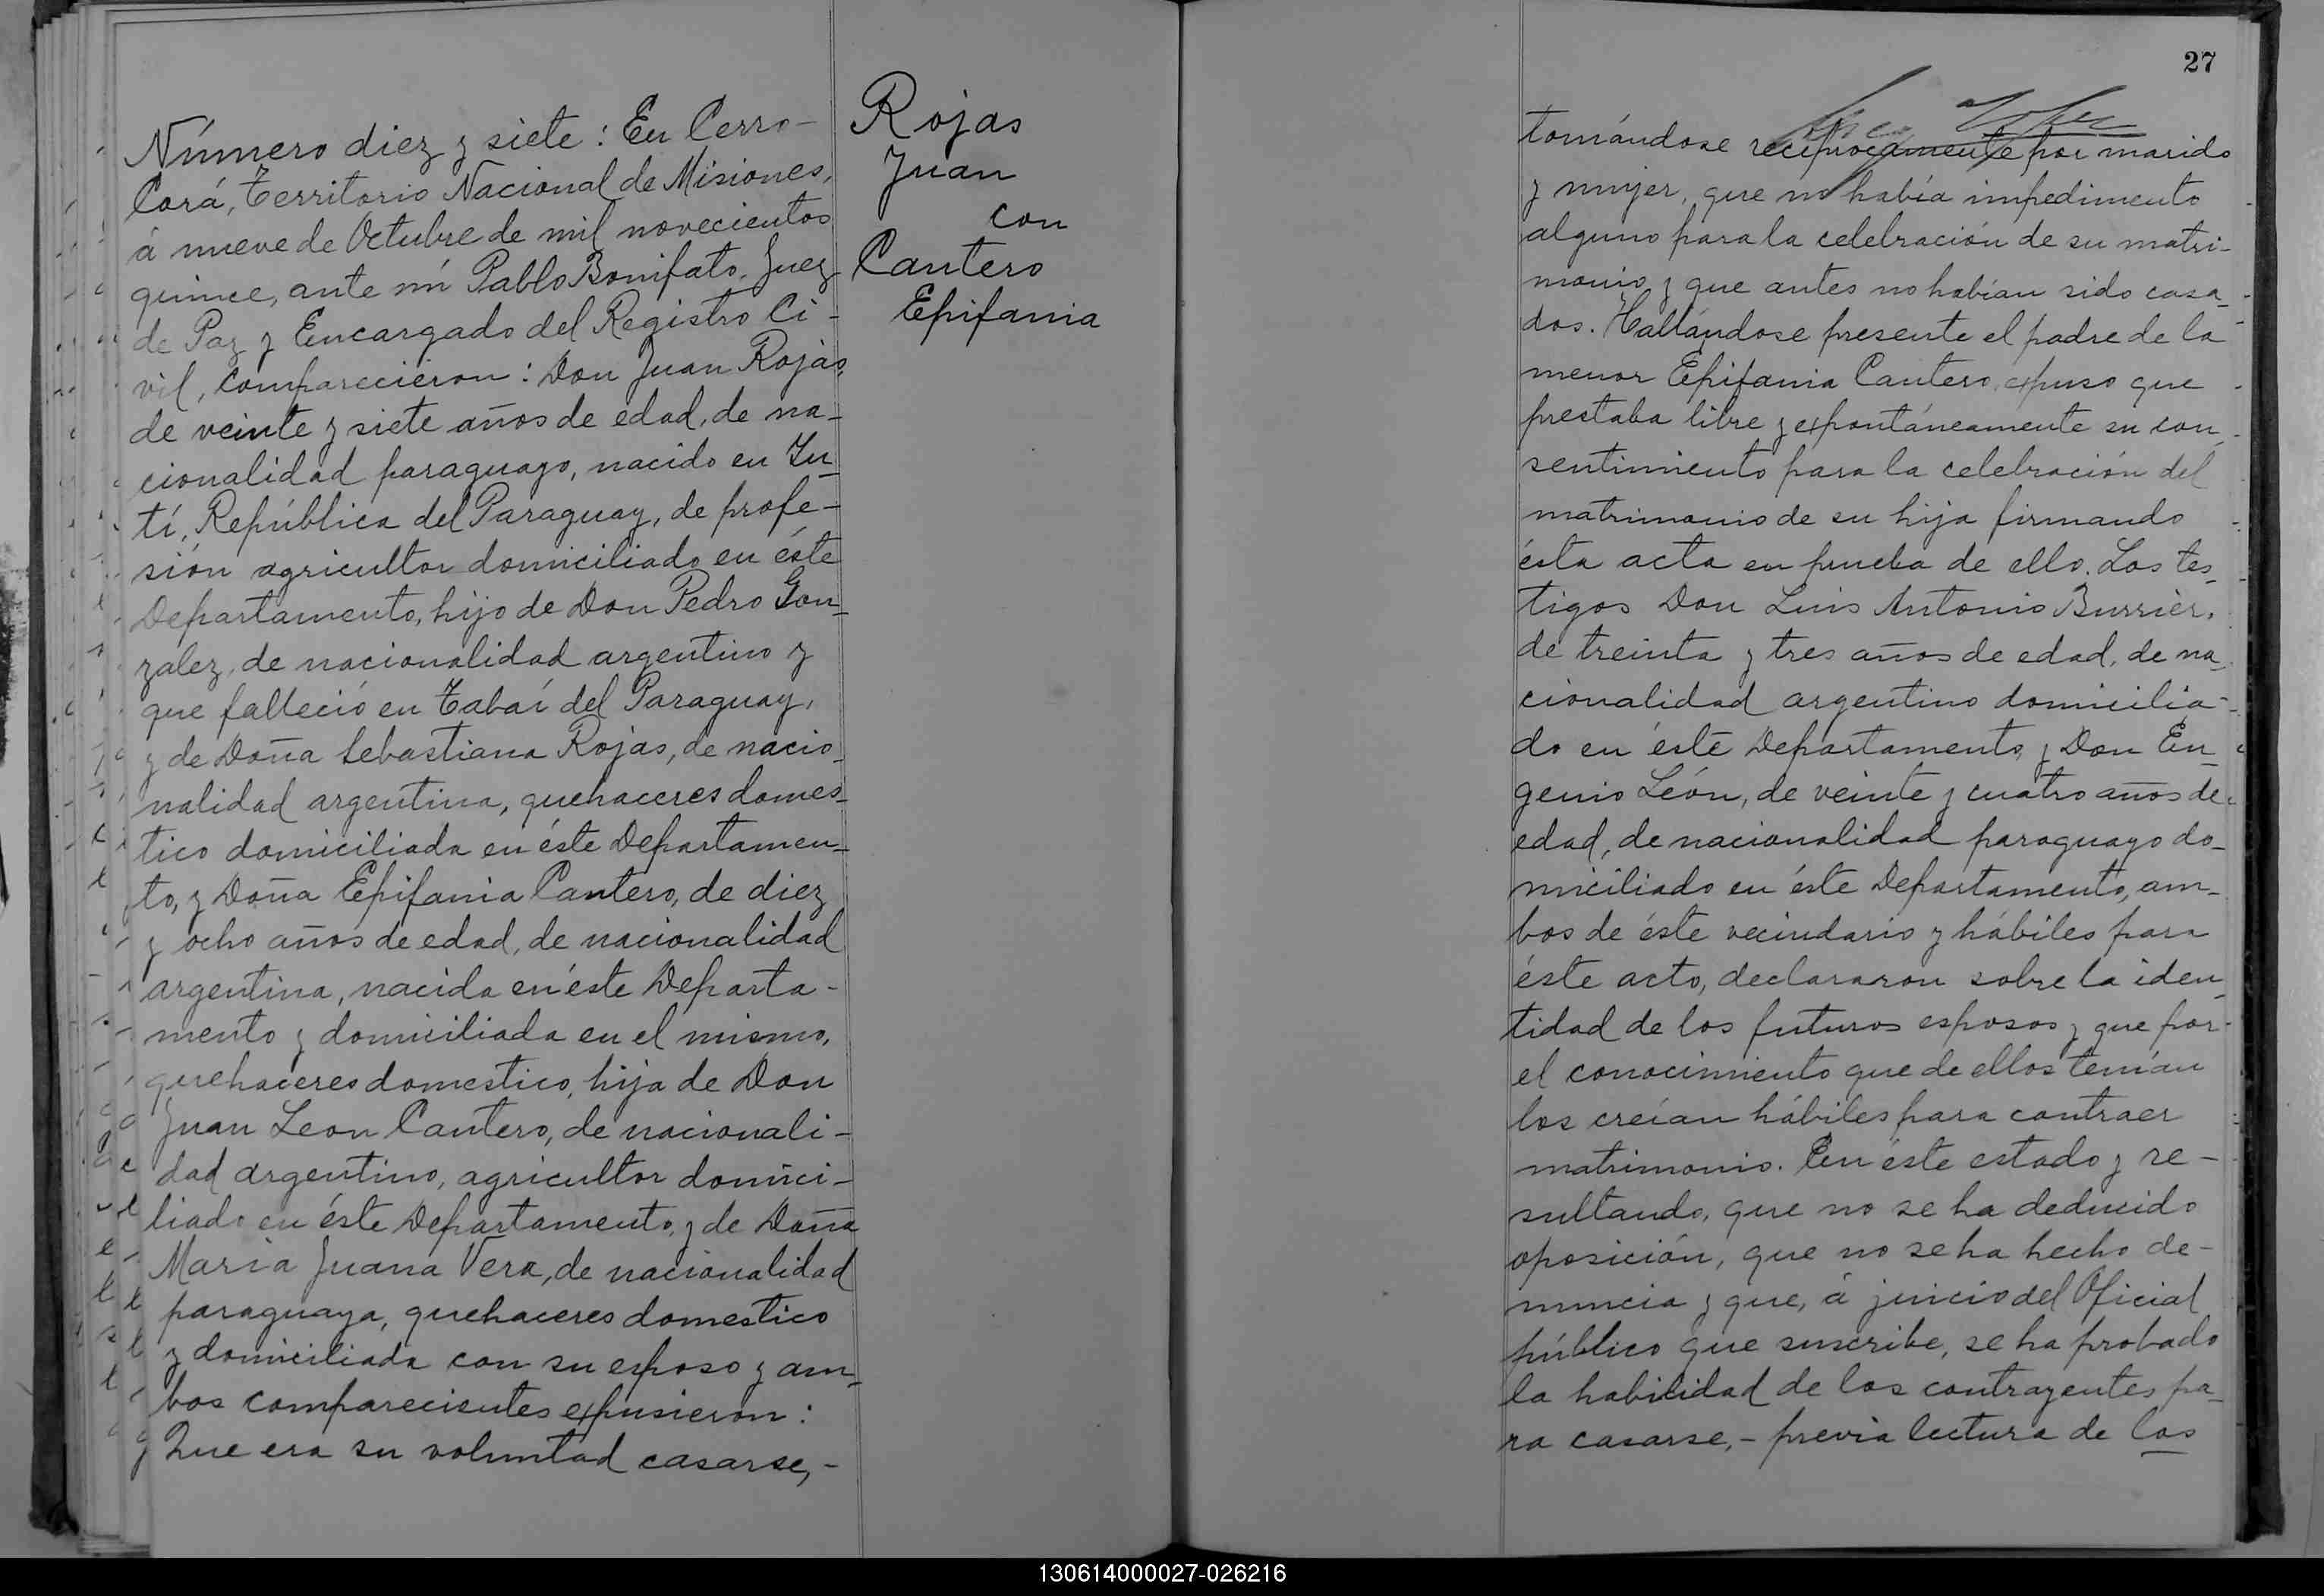 Número diez y siete: En Cerro-
Corá, Territorio Nacional de Misiones,
á nueve de Octubre de mil novecientos
quince, ante mí Pablo Bonifato, Juez
de Paz y Encargado del Registro Ci-
vil, comparecieron: Don Juan Rojas,
de veinte y siete años de edad, de na-
cionalidad paraguayo, nacido en Yu-
tí, República del Paraguay, de profe-
sión agricultor domiciliado en éste
Departamento, hijo de Don Pedro Gon-
zalez, de nacionalidad argentino y
que falleció en Tabaí del Paraguay,
y de Doña Sebastiana Rojas, de nacio-
nalidad argentina, quehaceres domes-
tico domiciliada en éste Departamen-
to, y Doña Epifania Cantero, de diez
y ocho años de edad, de nacionalidad
argentina, nacida en éste Departa-
mento y domiciliada en el mismo,
quehaceres domestico, hija de Don
Juan Leon Cantero, de nacionali-
dad argentino, agricultor domici-
liado en éste Departamento, y de Doña
Maria Juana Vera, de nacionalidad
paraguaya, quehaceres domestico
y domiciliada con su esposo y am-
bos comparecientes expusieron:
Que era su voluntad casarse,-
Rojas
Juan
con
Cantero
Epifania
27
tomándose reciprocamente por marido
y mujer, que no había impedimento
alguno para la celebración de su matri-
monio, y que antes no habían sido casa-
dos. Hallándose presente el padre de la
menor Epifania Cantero, expuso que
prestaba libre y expontáneamente su con-
sentimiento para la celebración del
matrimonio de su hija firmando
ésta acta en prueba de ello. Los tes-
tigos Don Luis Antonio Burrier,
de treinta y tres años de edad, de na-
cionalidad argentino domicilia-
do en éste Departamento, y Don Eu-
genio León, de veinte y cuatro años de
edad, de nacionalidad paraguayo do-
miciliado en éste Departamento, am-
bos de éste vecindario y hábiles para
éste acto, declararon sobre la iden-
tidad de los futuros esposos y que por
el conocimiento que de ellos tenían
los creían hábiles para contraer
matrimonio. En éste estado y re-
sultando, que no se ha deducido
oposición, que no se ha hecho de-
nuncia y que, á juicio del Oficial
público que suscribe, se ha probado
la habilidad de los contrayentes pa-
ra casarse,- previa lectura de los
130614000027-026216